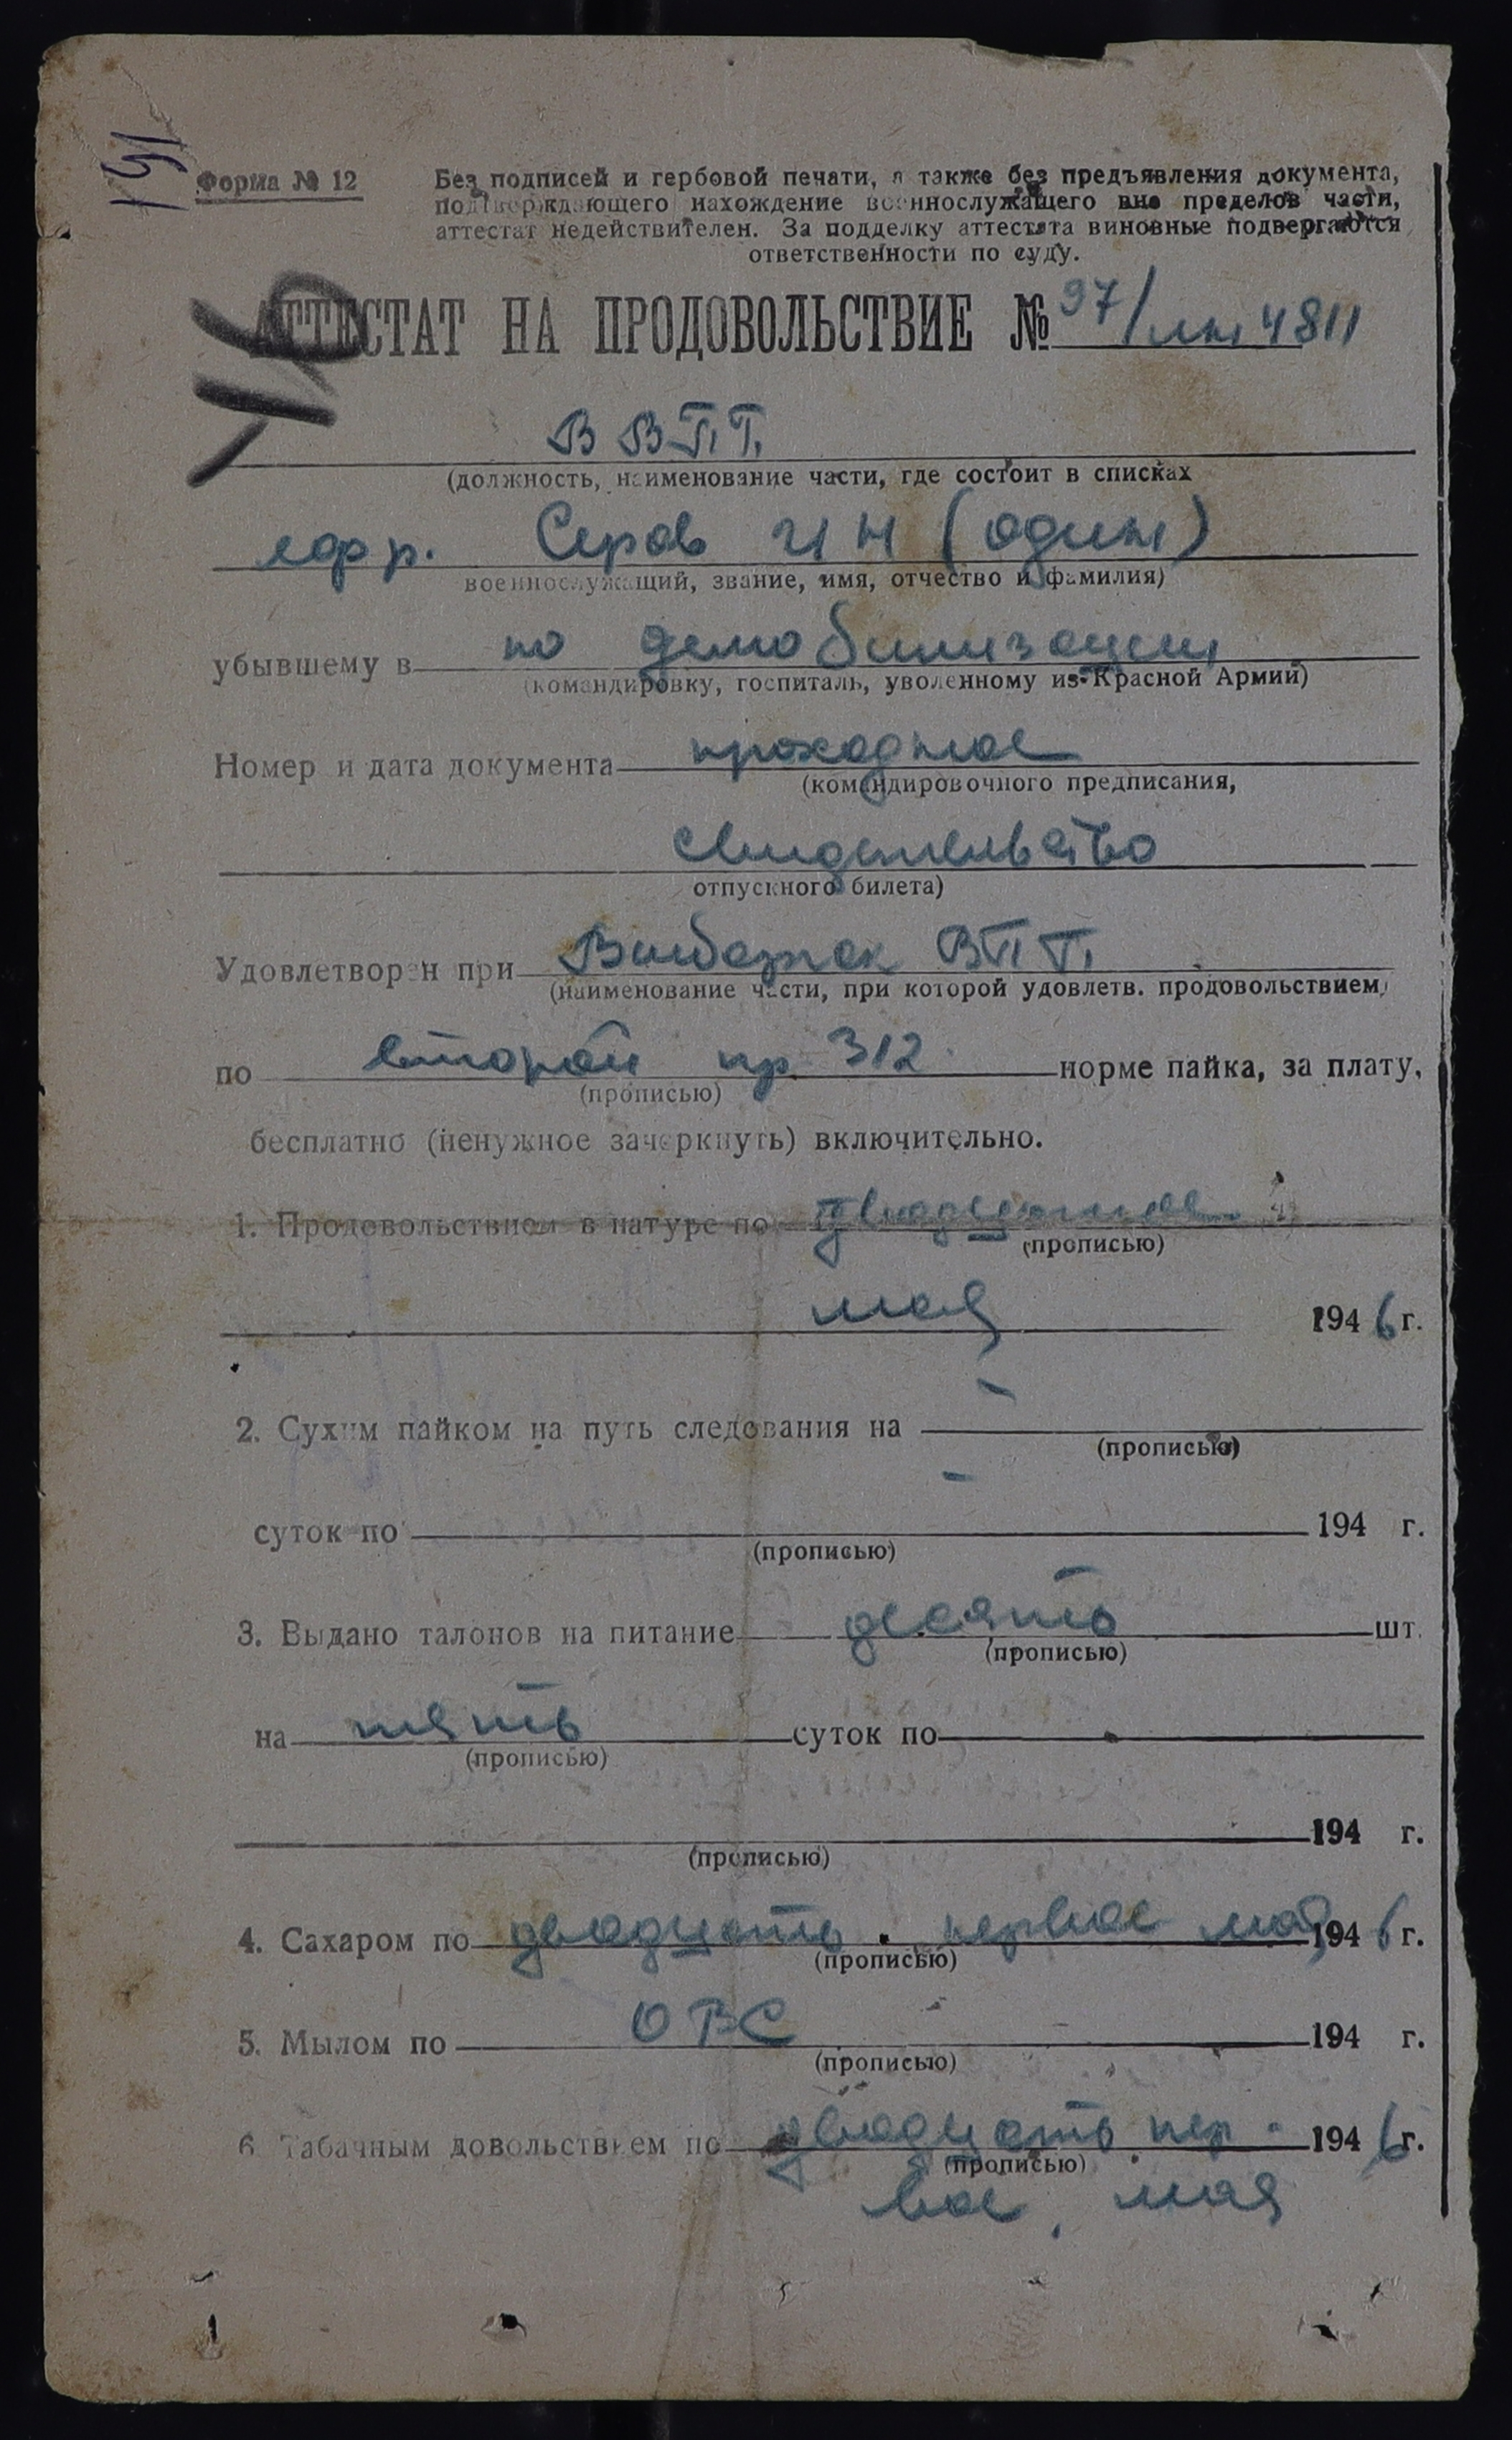 151
Форма № 12
Без подписей и гербовой печати, а также без предъявления документа,
подтверждающего нахождение военнослужащего вне пределов части,
аттестат недействителен. За подделку аттестата виновные подвергаются
ответственности по суду.
АТТЕСТАТ НА ПРОДОВОЛЬСТВИЕ № 97/ 4811
В ВПП
(должность, наименование части, где состоит в списках
ефр. Серов И Н (один)
военнослужащий, звание, имя, отчество и фамилия)
убывшему в по демобилизации
(командировку, госпиталь, уволенному из Красной Армии)
Номер и дата документа проходное
(командировочного предписания,
свидетельство
отпускного билета)
Удовлетворен при ВПП
(наименование части, при которой удовлетв. продовольствием)
по второй пр 312 норме пайка, за плату,
(прописью)
бесплатно (ненужное зачеркнуть) включительно.
1. Продовольствием в натуре по двадцатое
(прописью)
мая 1946 г.
2. Сухим пайком на путь следования на -
(прописью)
суток по - 194 г.
(прописью)
3. Выдано талонов на питание десять шт.
(прописью)
на пять суток по
(прописью)
194 г.
(прописью)
4. Сахаром по двадцать первое мая 1946 г.
(прописью)
5. Мылом по ОВС 194 г.
(прописью)
6. Табачным довольствием по двадцать пер- 1946 г.
(прописью)
вое мая